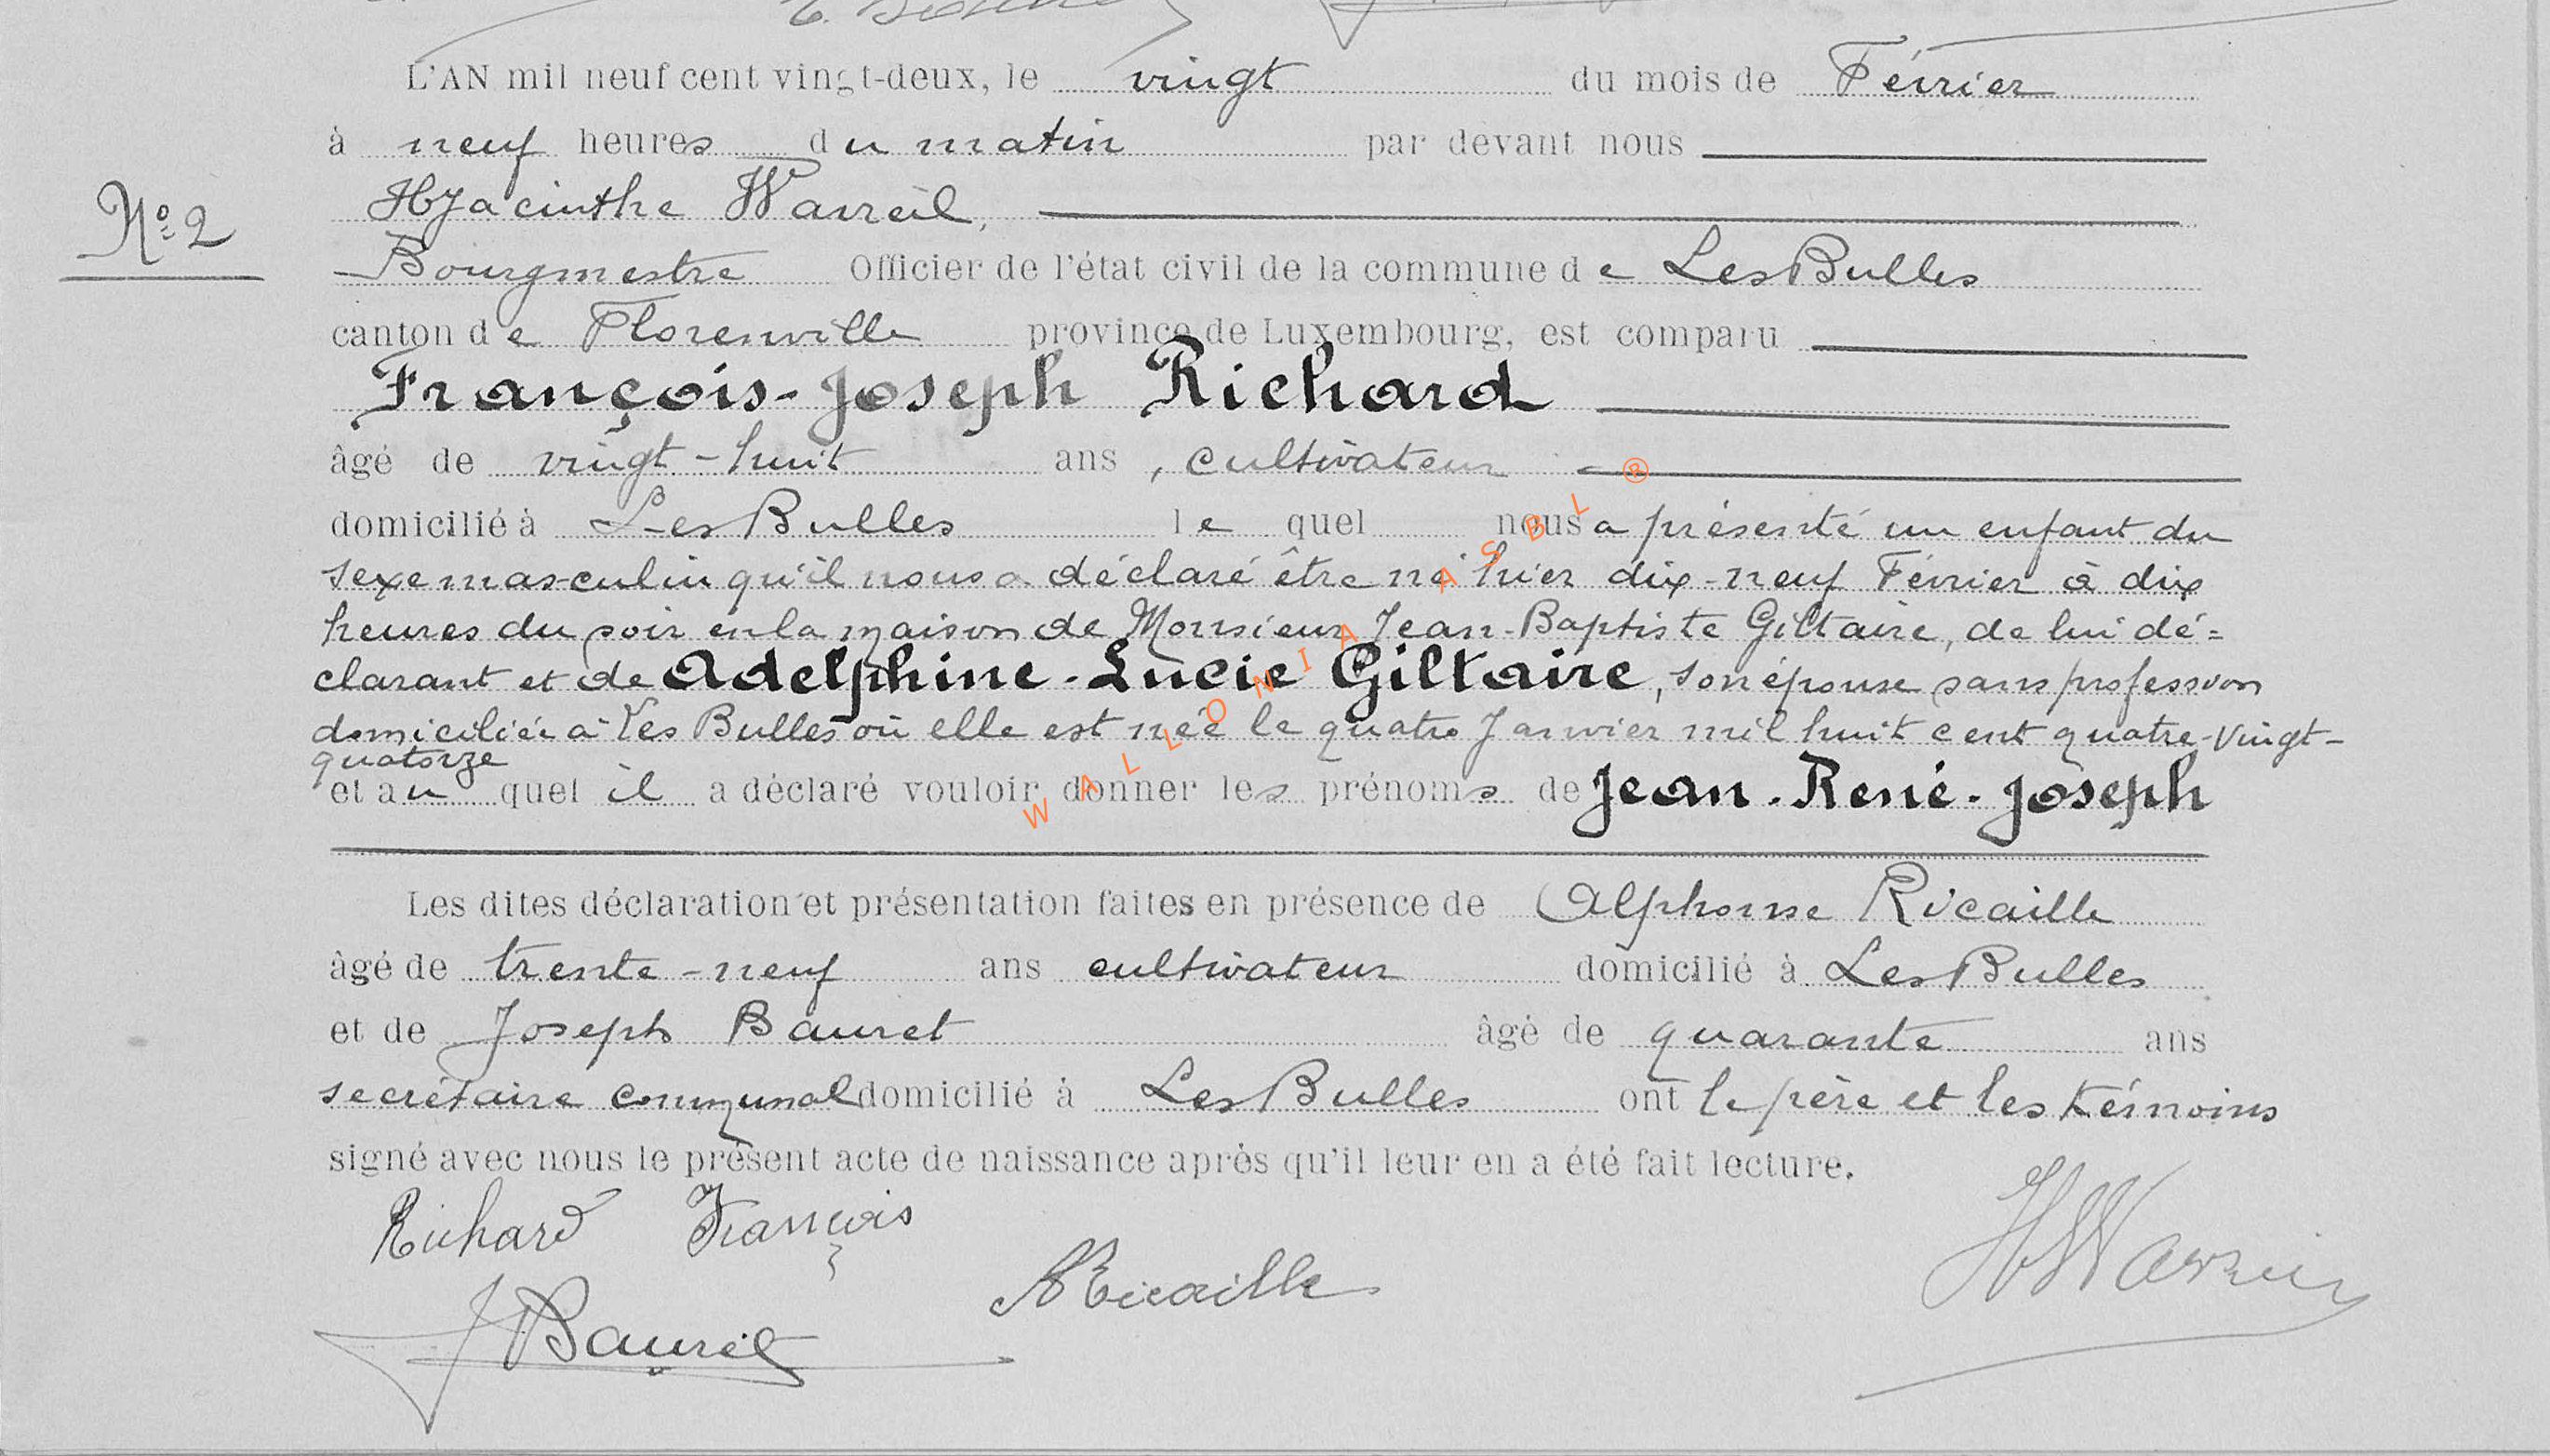 L'AN mil neuf cent vingt-deux, le vingt du mois de Février
à neuf heures du matin par devant nous
N° 2
Hyacinthe
Bourgmestre Officier de l'état civil de la commune de Les Bulles
canton de Florenville province de Luxembourg, est comparu
François-Joseph Richard
âgé de vingt-huit ans, cultivateur
domicilié à Les Bulles le quel nous a présenté un enfant du
sexe masculin qu'il nous a déclaré être né hier dix-neuf Février à dix
heures du soir en la maison de Monsieur Jean-Baptiste Giltaire, de lui dé=
clarant et de Adelphine-Lucie Giltaire, son épouse sans profession
domiciliée à Les Bulles où elle est née le quatre Janvier mil huit cent quatre-vingt-
quatorze
et au quel il a déclaré vouloir donner les prénoms de Jean-René-Joseph
Les dites déclaration et présentation faites en présence de Alphonse Ricaille
âgé de trente-neuf ans cultivateur domicilié à Les Bulles
et de Joseph Bauret âgé de quarante ans
secrétaire communal domicilié à Les Bulles ont le père et les témoins
signé avec nous le présent acte de naissance après qu'il leur en a été fait lecture.
Richard François
A Ricaille
J Bauret
WALLONIA ASBL ®